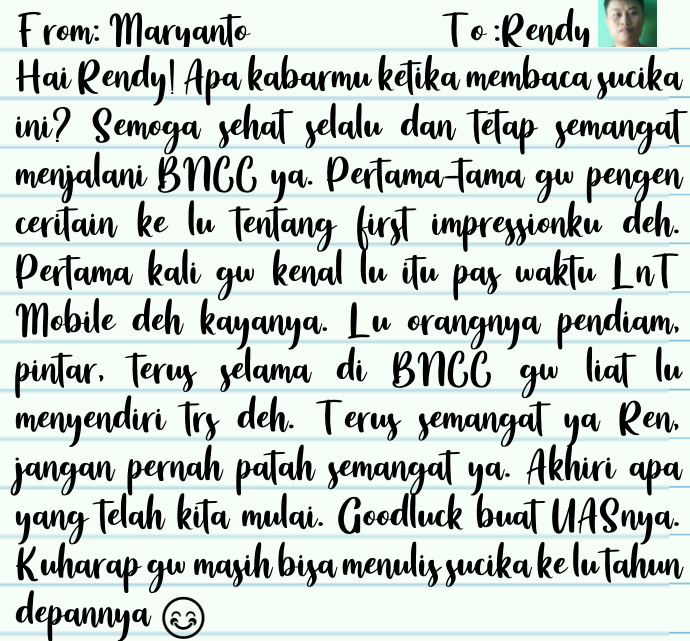 From: Maryanto To :Rendy
Hai Rendy! Apa kabarmu ketika membaca sucika
ini? Semoga sehat selalu dan tetap semangat
menjalani BNCC ya. Pertama-tama gw pengen
ceritain ke lu tentang first impressionku deh.
Pertama kali gw kenal lu itu pas waktu LnT
Mobile deh kayanya. Lu orangnya pendiam,
pintar, terus selama di BNCC gw liat lu
menyendiri trs deh. Terus semangat ya Ren,
jangan pernah patah semangat ya. Akhiri apa
yang telah kita mulai. Goodluck buat UASnya.
Kuharap gw masih bisa menulis sucika ke lu tahun
depannya 😊